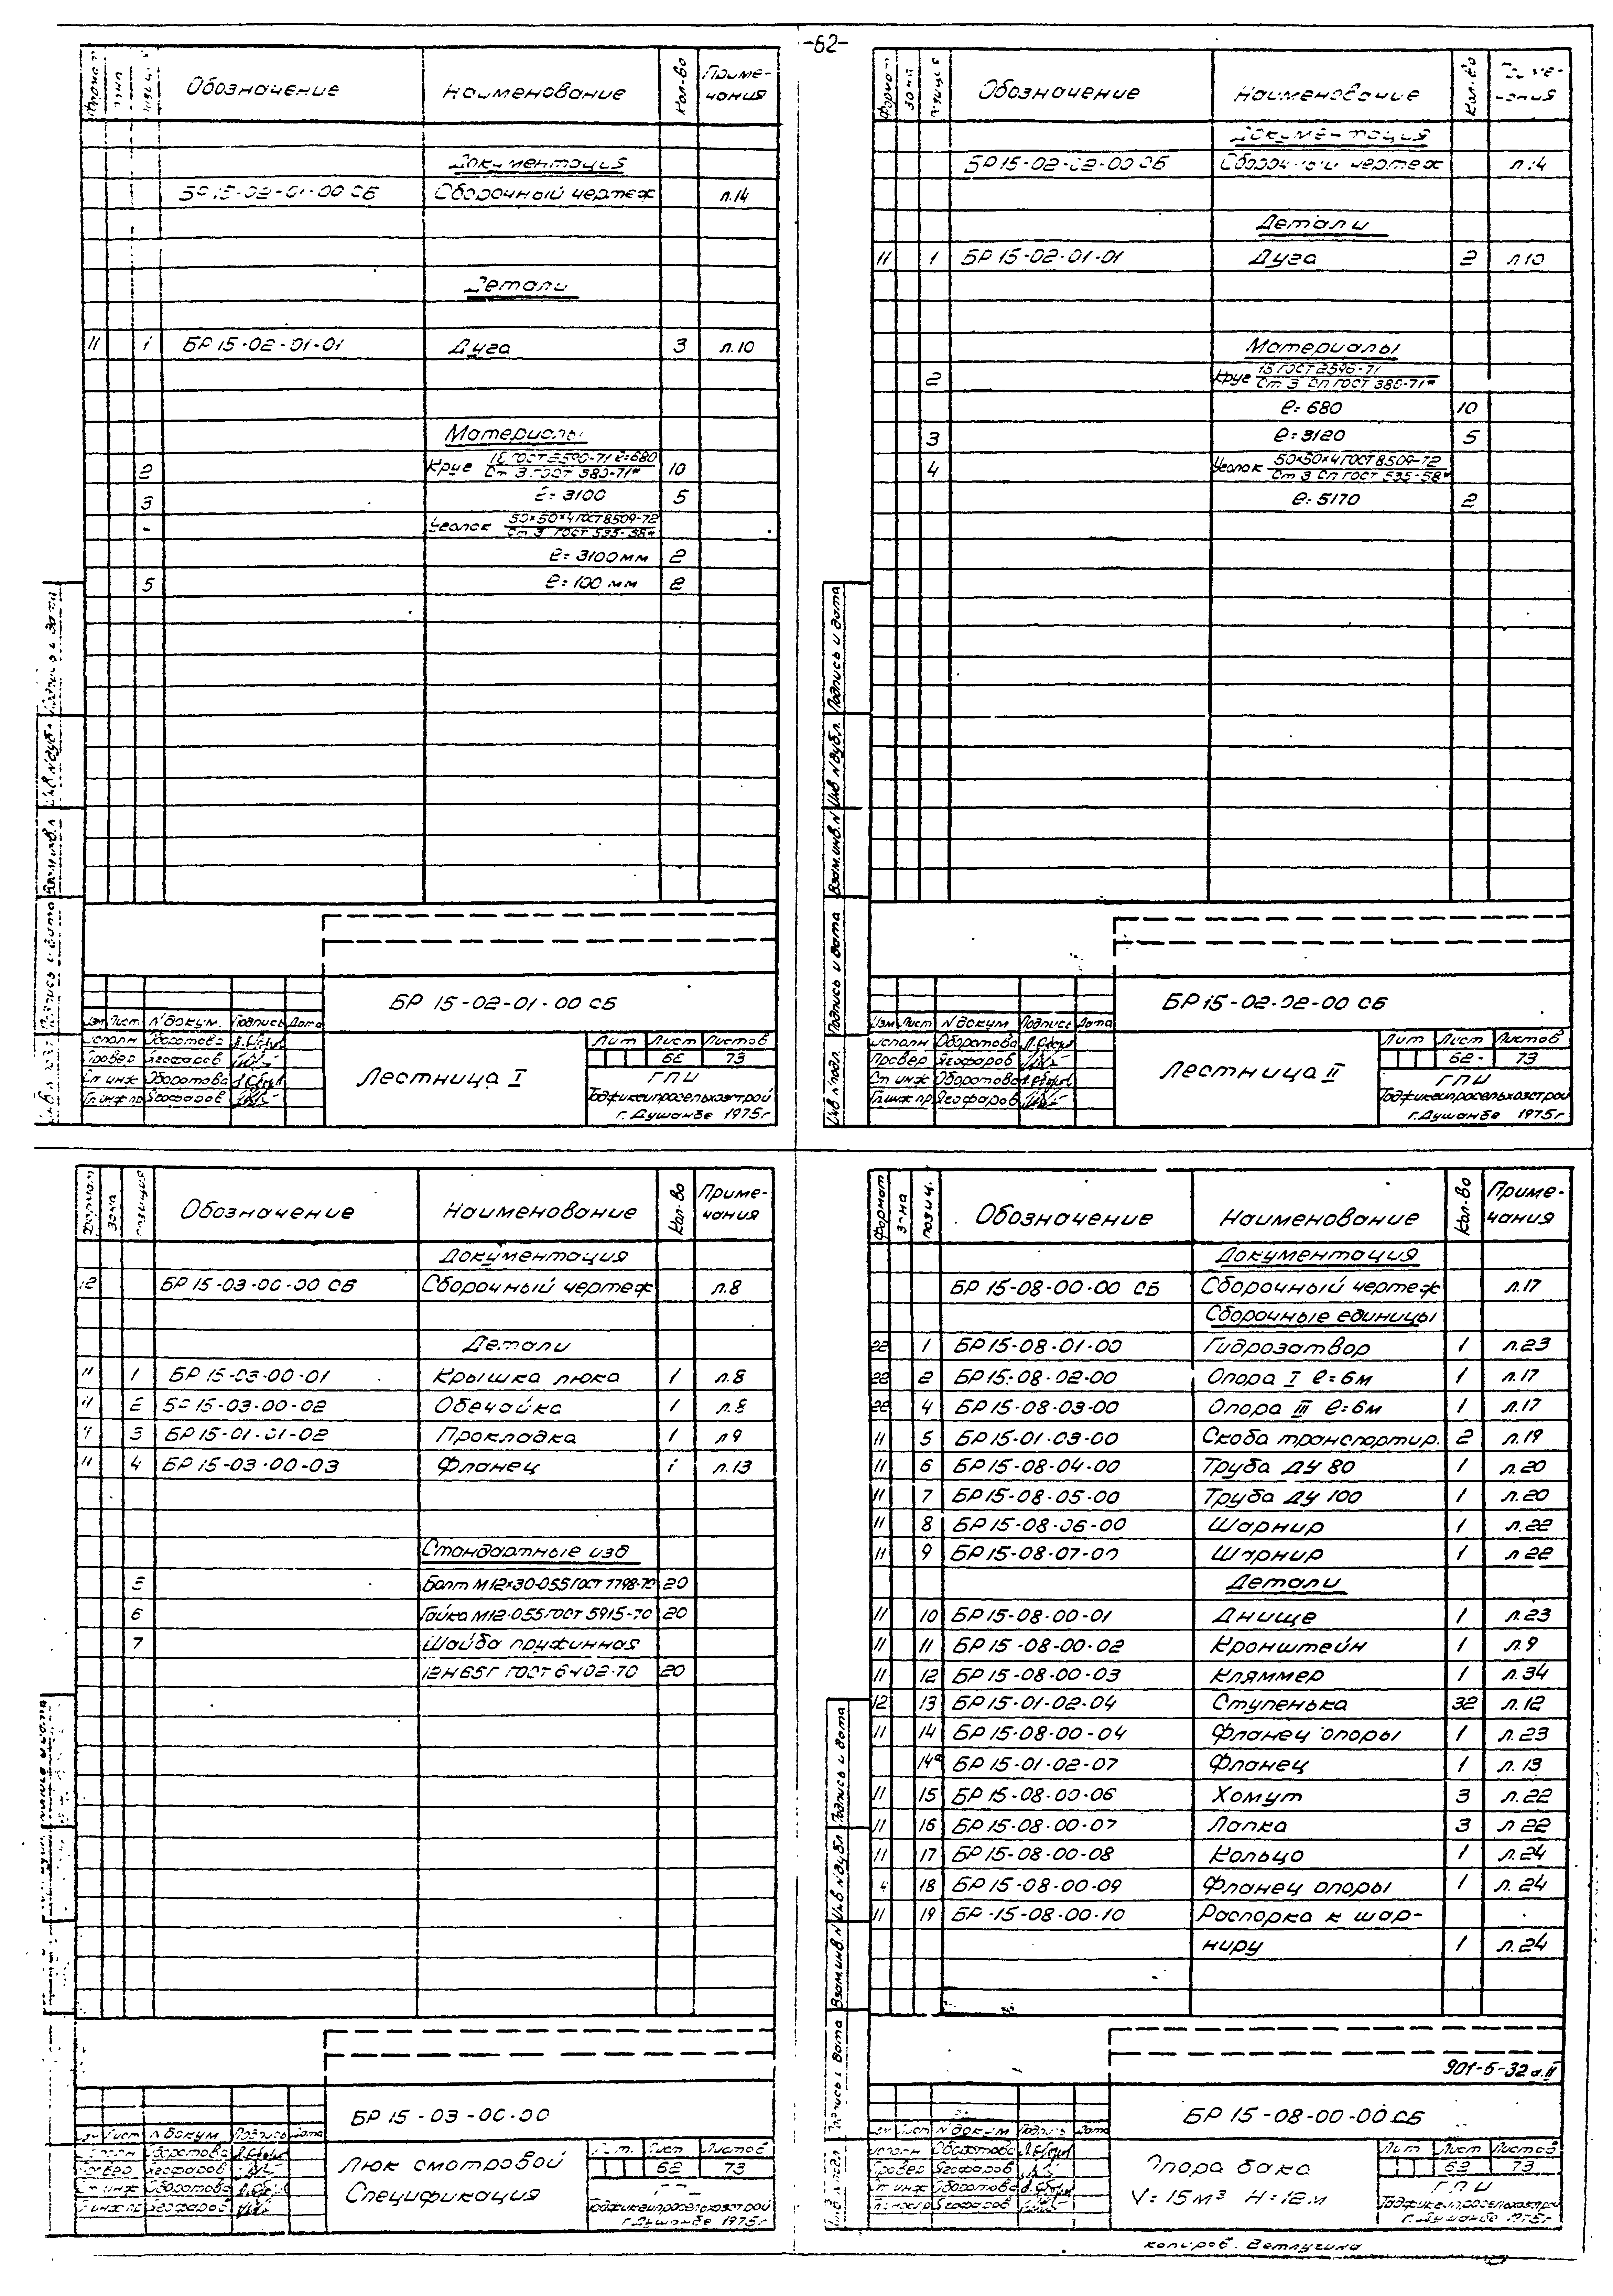 -62-
Формат Зона Позиция Обозначение Наименование Кол-во Приме-
чания
Документация
БР 15-02-01-00 СБ Сборочный чертеж л.14
Детали
11 1 БР 15-02-01-01 Дуга 3 л.10
Материалы
2 Круг 18 ГОСТ 2590-71 ℓ=680 10
Ст 3 ГОСТ 380-71*
3 ℓ=3100 5
- Уголок 50×50×4 ГОСТ 8509-72
Ст 3 ГОСТ 535-58*
ℓ=3100 мм 2
5 ℓ=100 мм 2
БР 15-02-01-00 СБ
Изм Лист N докум. Подпись Дата
Исполн Оборотова
Провер Ягофаров
Ст инж Оборотова
Гл.инж.пр Ягофаров
Лестница I
Лит Лист Листов
62 73
ГПИ
Таджикгипросельхозстрой
г.Душанбе 1975г
Подпись и дата
Инв N дубл
Взам инв.N
Подпись и дата
Инв N подл.
Формат Зона Позиция Обозначение Наименование Кол-во Приме-
чания
Документация
БР 15-02-02-00 СБ Сборочный чертеж л.14
Детали
11 1 БР 15-02-01-01 Дуга 2 л.10
Материалы
2 Круг 18 ГОСТ 2590-71
Ст 3 Сп ГОСТ 380-71*
ℓ=680 10
3 ℓ=3120 5
4 Уголок 50×50×4 ГОСТ 8509-72
Ст 3 Сп ГОСТ 535-58*
ℓ=5170 2
БР 15-02-02-00 СБ
Изм Лист N докум Подпись Дата
Исполн Оборотова
Провер Ягофаров
Ст инж Оборотова
Гл.инж пр Ягофаров
Лестница II
Лит Лист Листов
62 73
ГПИ
Таджикгипросельхозстрой
г.Душанбе 1975г
Подпись и дата
Инв N дубл.
Взам.инв.N
Подпись и дата
Инв N подл.
Формат Зона Позиция Обозначение Наименование Кол-во Приме-
чания
Документация
12 БР 15-03-00-00 СБ Сборочный чертеж л.8
Детали
11 1 БР 15-03-00-01 Крышка люка 1 л.8
11 2 БР 15-03-00-02 Обечайка 1 л.8
11 3 БР 15-01-01-02 Прокладка 1 л9
11 4 БР 15-03-00-03 Фланец 1 л.13
Стандартные изд
5 Болт М12×30-055 ГОСТ 7798-70 20
6 Гайка М12-055 ГОСТ 5915-70 20
7 Шайба пружинная
12Н 65Г ГОСТ 6402-70 20
БР 15-03-00-00
Лист N докум Подпись Дата
Исполн Оборотова
Провер Ягофаров
Ст инж Оборотова
Гл инж пр Ягофаров
Люк смотровой
Спецификация
Лит. Лист Листов
62 73
Таджикгипросельхозстрой
г.Душанбе 1975г
Формат Зона Позиц. Обозначение Наименование Кол-во Приме-
чания
Документация
БР 15-08-00-00 СБ Сборочный чертеж л.17
Сборочные единицы
22 1 БР 15-08-01-00 Гидрозатвор 1 л.23
22 2 БР 15-08-02-00 Опора I ℓ=6м 1 л.17
22 4 БР 15-08-03-00 Опора III ℓ=6м 1 л.17
11 5 БР 15-01-03-00 Скоба транспортир. 2 л.19
11 6 БР 15-08-04-00 Труба ДУ 80 1 л.20
11 7 БР 15-08-05-00 Труба ДУ 100 1 л.20
11 8 БР 15-08-06-00 Шарнир 1 л.22
11 9 БР 15-08-07-00 Шарнир 1 л 22
Детали
11 10 БР 15-08-00-01 Днище 1 л.23
11 11 БР 15-08-00-02 Кронштейн 1 л.9
11 12 БР 15-08-00-03 Кляммер 1 л.34
12 13 БР 15-01-02-04 Ступенька 32 л.12
11 14 БР 15-08-00-04 Фланец опоры 1 л.23
14а БР 15-01-02-07 Фланец 1 л.13
11 15 БР 15-08-00-06 Хомут 3 л.22
11 16 БР 15-08-00-07 Лапка 3 л 22
11 17 БР 15-08-00-08 Кольцо 1 л.24
4 18 БР 15-08-00-09 Фланец опоры 1 л.24
11 19 БР-15-08-00-10 Распорка к шар-
ниру 1 л.24
901-5-32 а.II
БР 15-08-00-00 СБ
Лист N докум Подпись Дата
Исполн Оборотова
Провер Ягофаров
Ст инж Оборотова
Ягофаров
Опора бака
V=15м³ H=12м
Лит Лист Листов
62 73
ГПИ
Таджикгипросельхозстрой
г.Душанбе 1975г
Подпись и дата
Инв N дубл
Взам.инв.N
Подпись и дата
копиров. Ветлугина